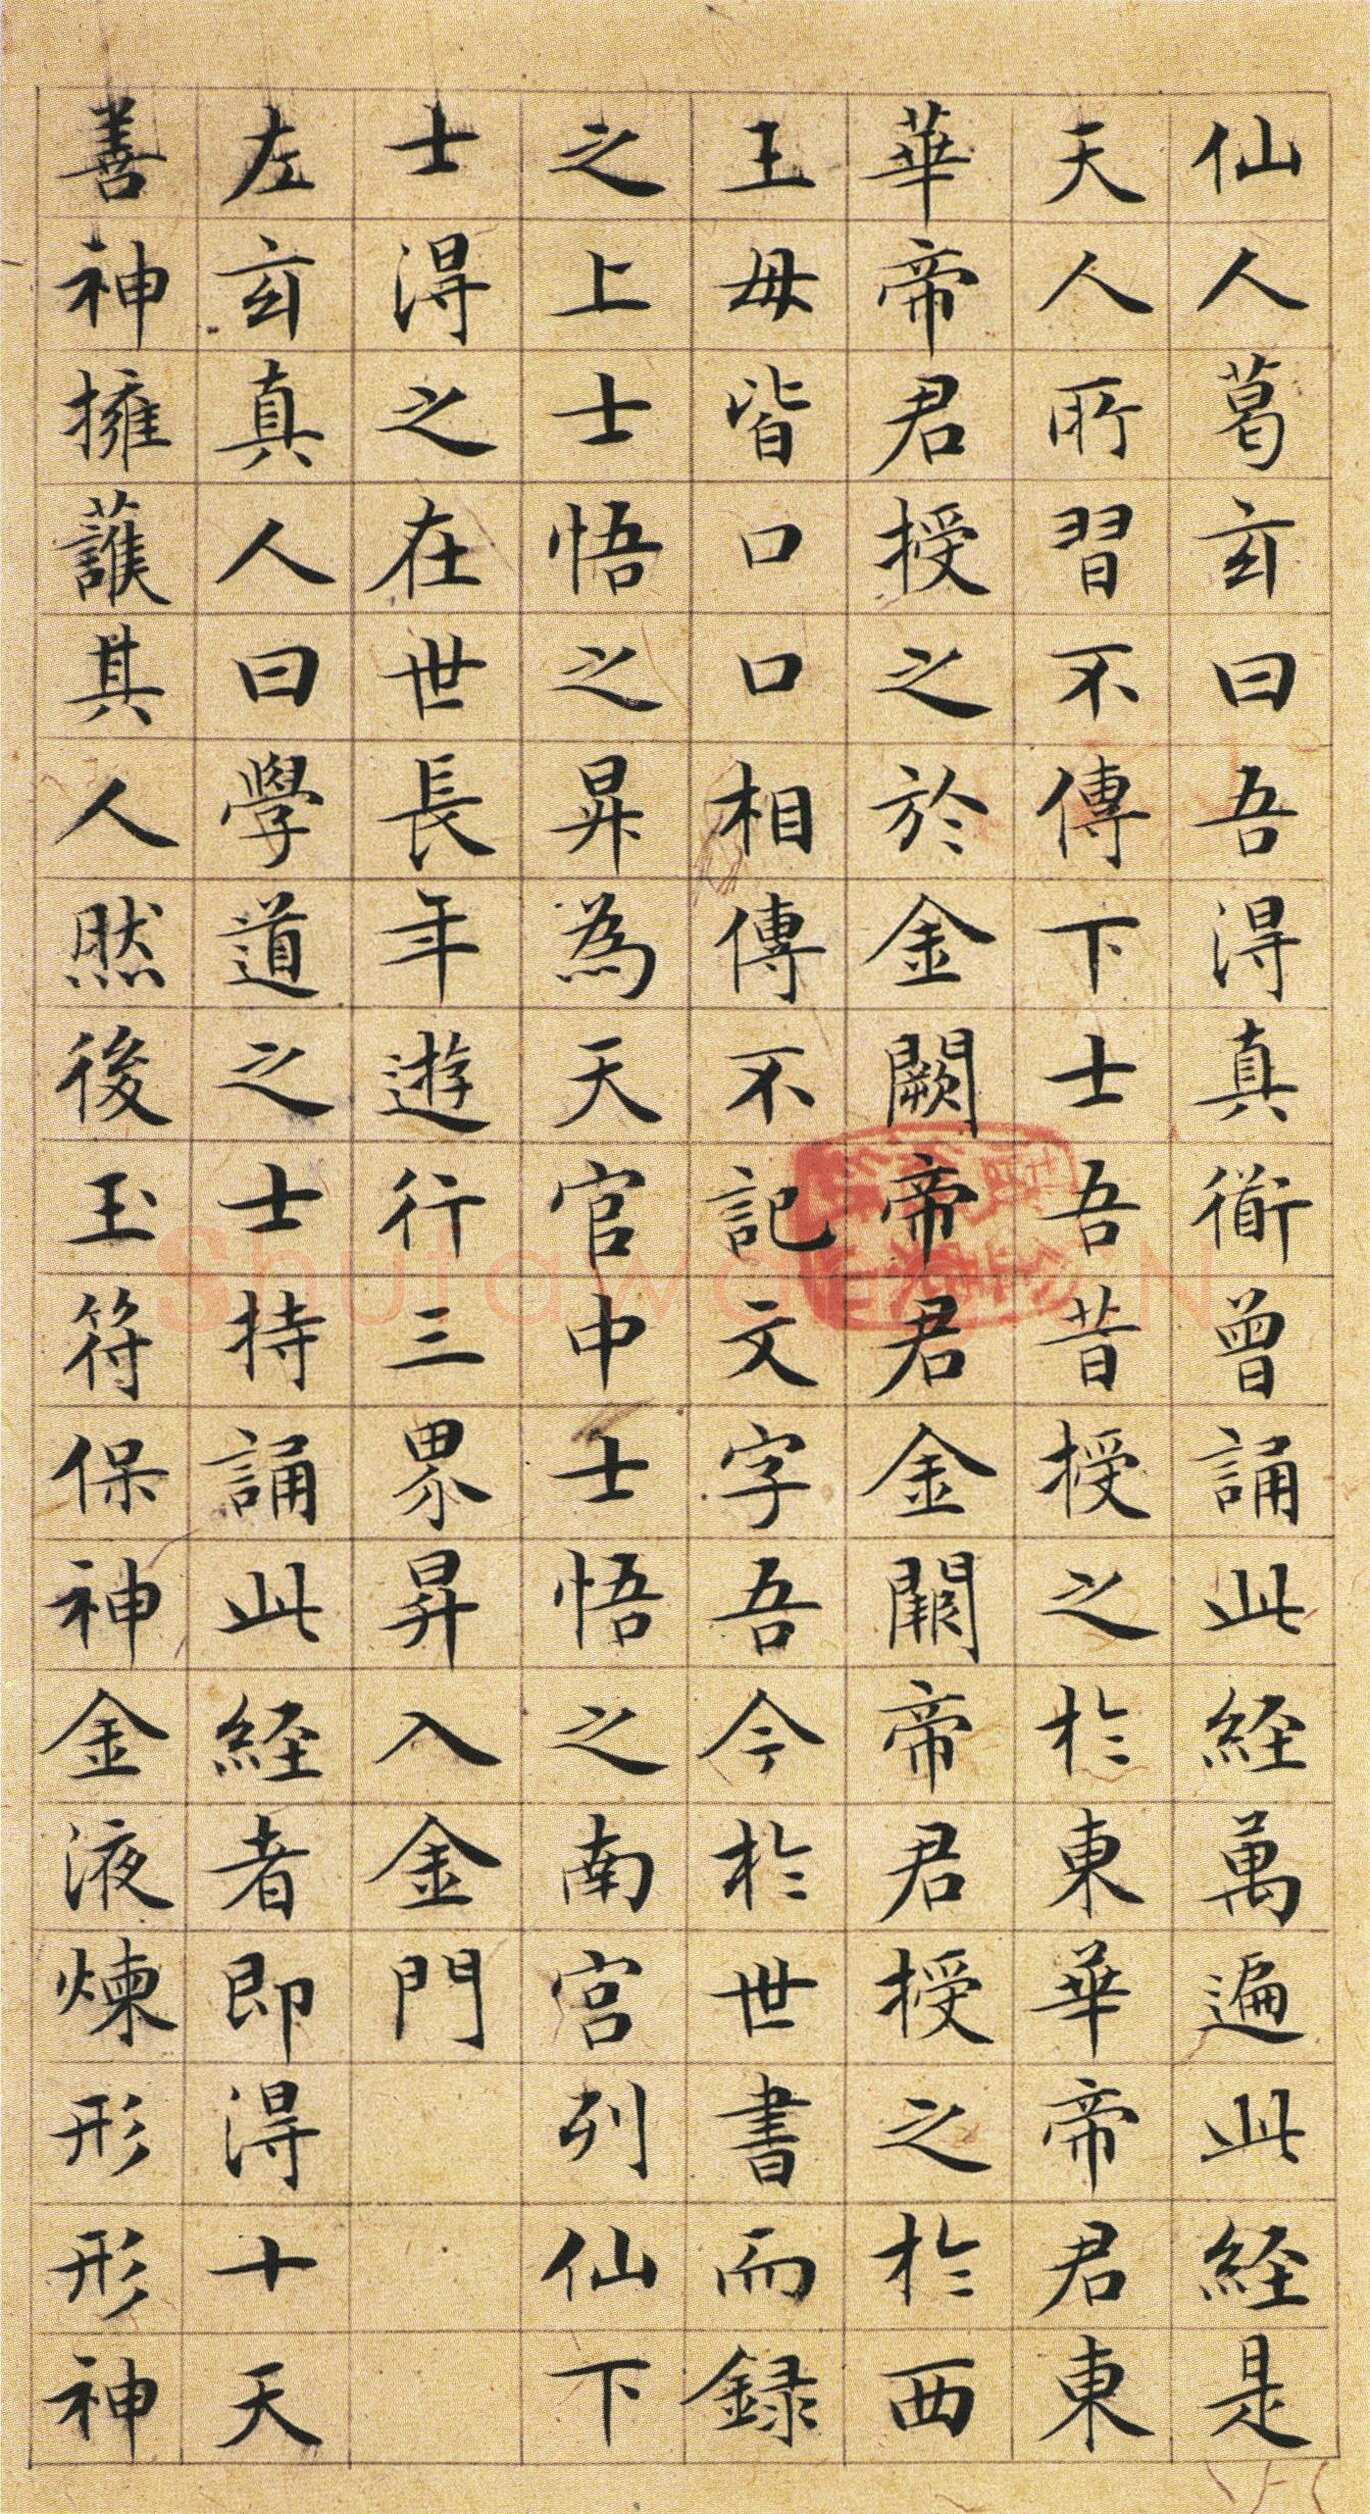 仙人葛玄曰吾得真衜曾誦此経萬遍此経是
天人所習不傳下士吾昔授之於東華帝君東
華帝君授之於金闕帝君金闕帝君授之於西
王母皆口口相傳不記文字吾今於世書而録
之上士悟之昇為天官中士悟之南宮列仙下
士得之在世長年遊行三界昇入金門
左玄真人曰學道之士持誦此経者即得十天
善神擁護其人然後玉符保神金液煉形形神
Shufawang.CN